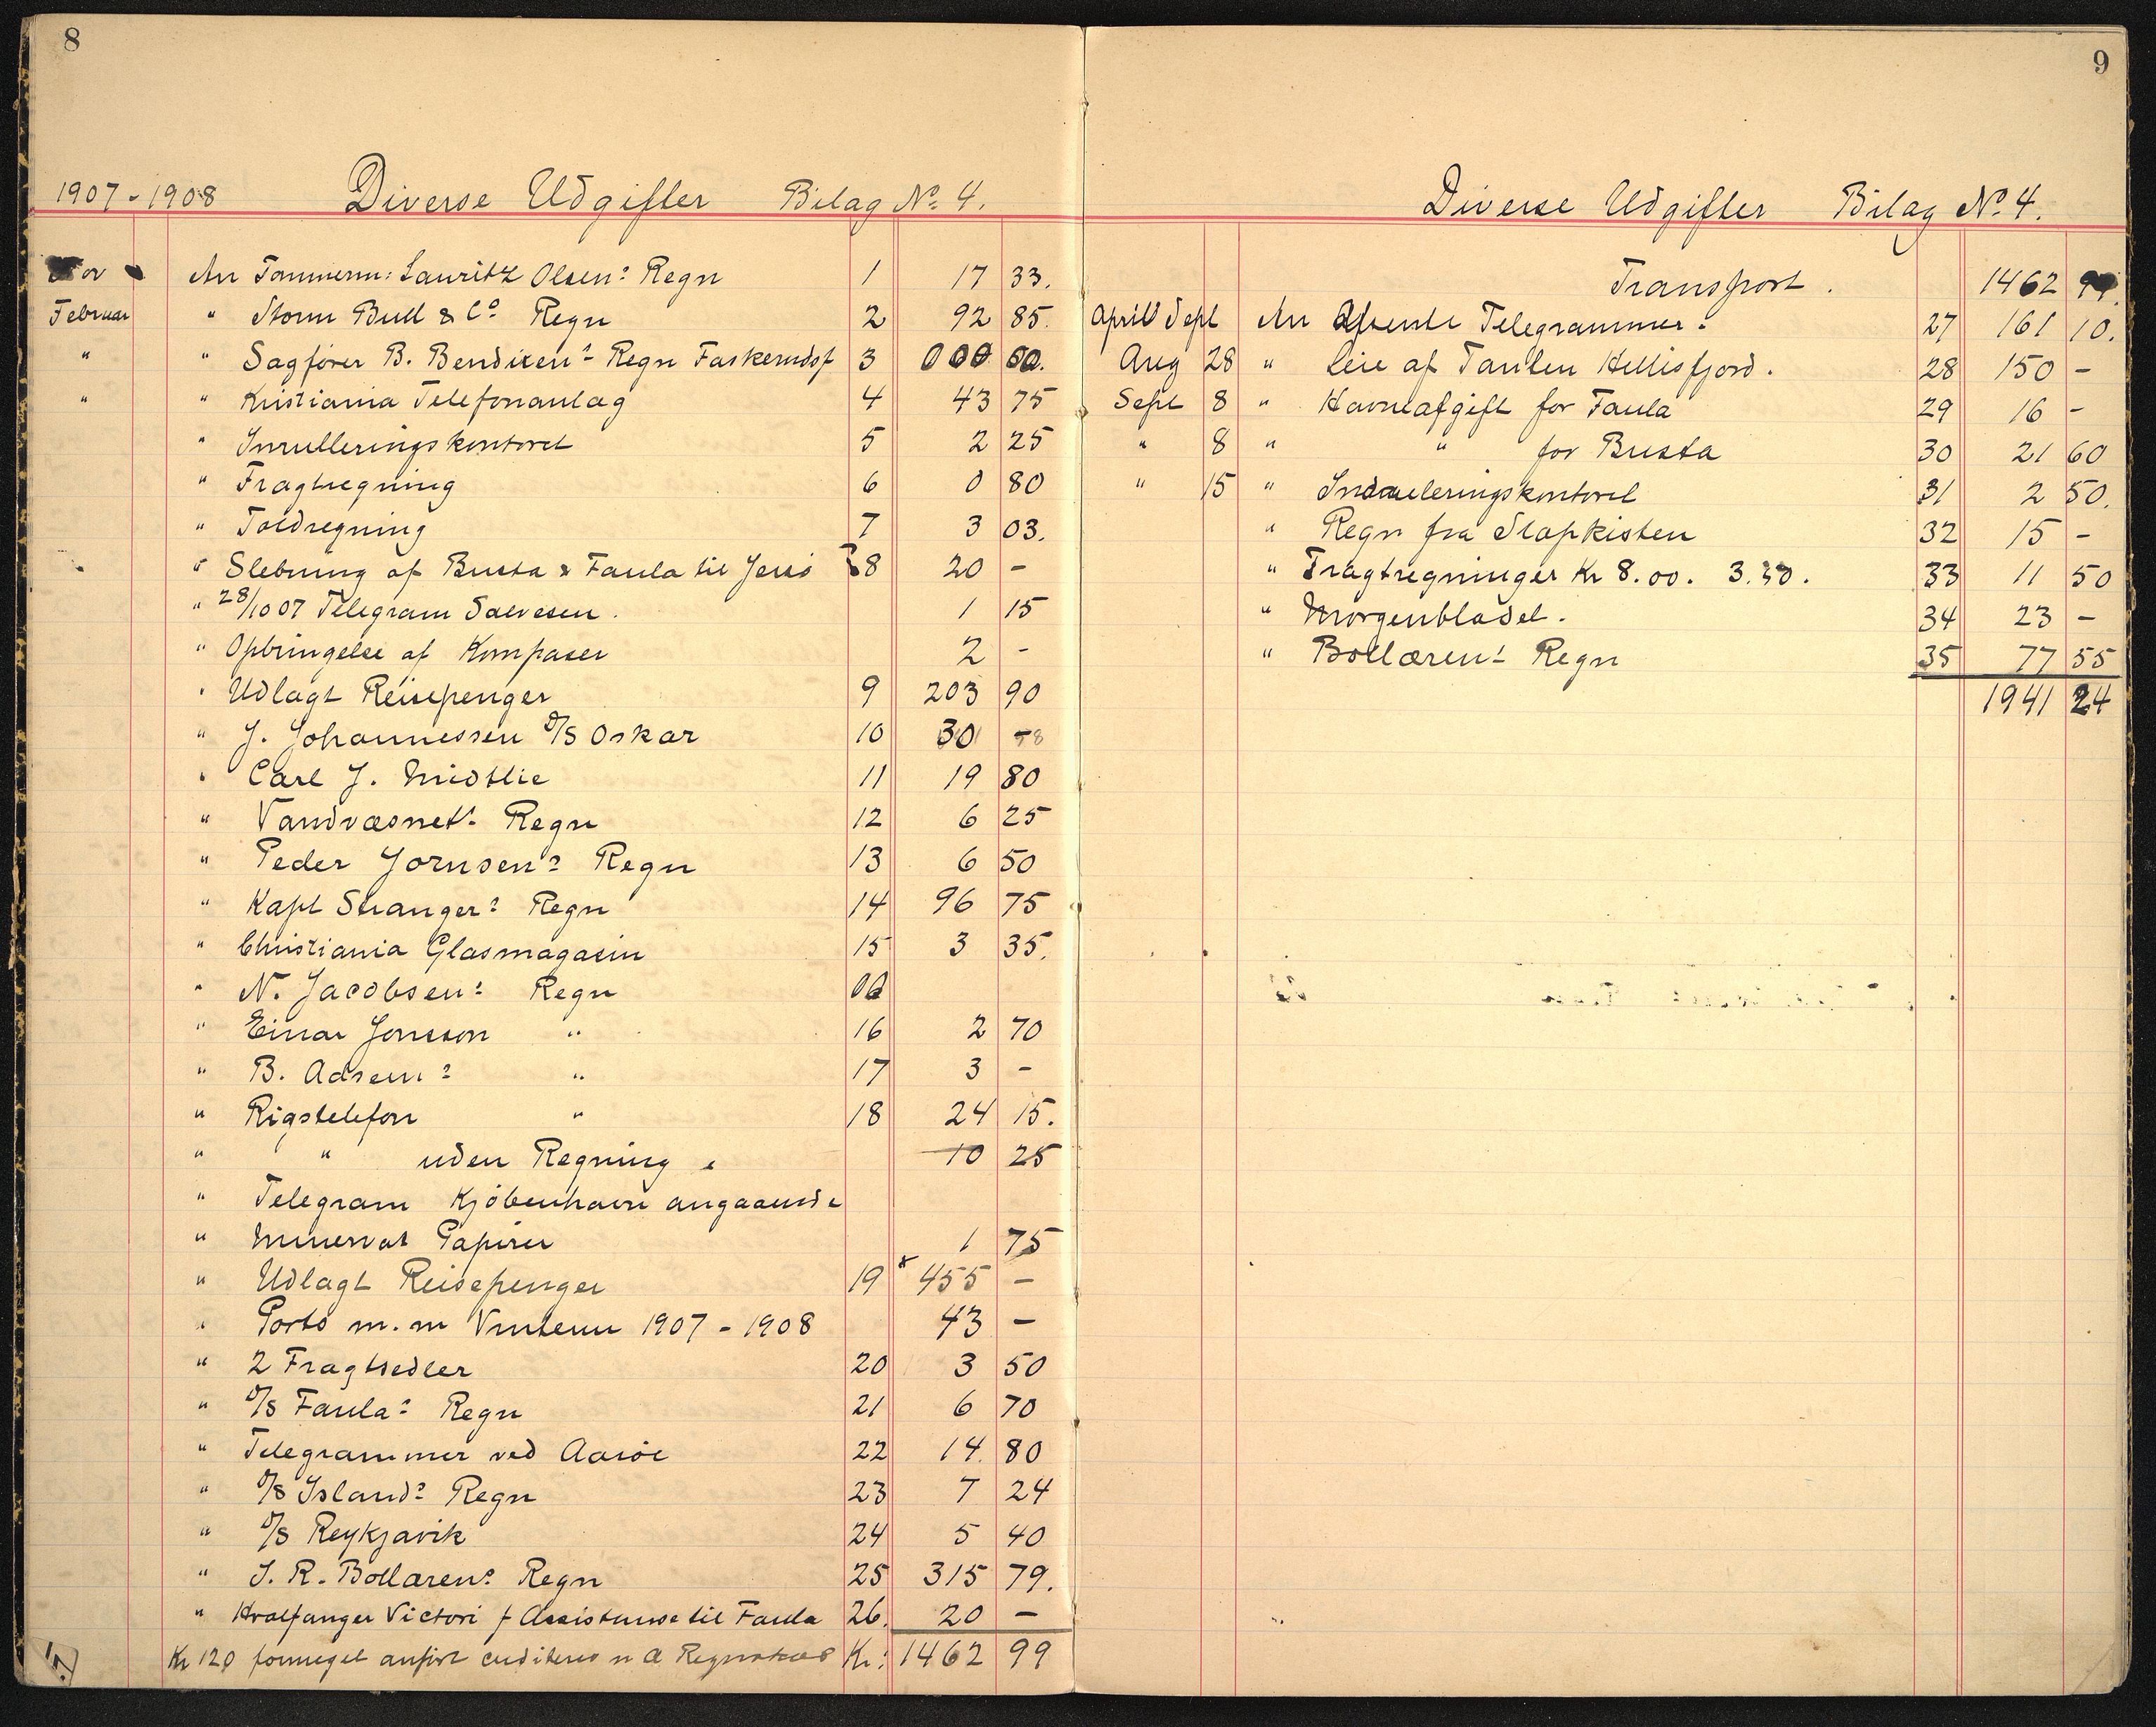 8
1907-1908 Diverse Udgifter Bilag No. 4.
An Tømmerm: Lauritz Olsens Regn 1 17 33.
Februar " Storm Bull & Co Regn 2 92 85.
" " Sagfører B. Bendixens Regn 3 000 00.
" " Kristiania Telefonanlæg 4 43 75
" Inrulleringskontoret 5 2 25
" Fragtregning 6 0 80
" Toldregning 7 3 03.
" Slebning af Busta & Faula til Jersö 8 20 -
" 28/10 07 Telegram Salvesen. 1 15
" Opbringelse af Kompaser 2 -
" Udlagt Reisepenger 9 203 90
" J. Johannessen D/S Oskar 10 30 -
" Carl J. Midtlie 11 19 80
" Vandvæsnets Regn 12 6 25
" Peder Jornsens Regn 13 6 50
" Kapt Strangers Regn 14 96 75
" Christiania Glasmagasin 15 3 35.
" N. Jacobsens Regn
" Einar Jonsson " 16 2 70
" B. Adsens " 17 3 -
" Rigstelefon " 18 24 15.
" " uden Regning 10 25
" Telegram Kjöbenhavn angaaende
" Minervas Papirer 1 75
" Udlagt Reisepenger 19 455 -
" Porto m.m Vinteren 1907-1908 43 -
" 2 Fragtsedler 20 3 50
" D/S Faulas Regn 21 6 70
" Telegrammer ved Aaröe 22 14. 80
" D/S Islands Regn 23 7 24
" D/S Reykjavik 24 5 40
" J. R. Bollærens Regn 25 315 79.
" Hvalfanger Victori f Assistanse til Faula 26. 20 -
Kr 120 formeget anfört Regnskab Kr: 1462 99
9
Diverse Udgifter Bilag No. 4.
Transport. 1462 99.
April Sept An Afsendte Telegrammer. 27 161 10.
Aug 28 " Leie af Tanken Hellisfjord. 28 150 -
Sept 8 " Havneafgift for Faula 29 16 -
" 8 " " for Busta 30 21 60
" 15 " Indrulleringskontoret 31 2 50.
" Regn fra Slopkisten 32 15 -
" Fragtregninger Kr 8.00. 3.50. 33 11 50
" Morgenbladet. 34 23 -
" Bollærens Regn 35 77 55
1941 24